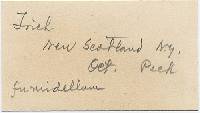 Trich
New Scotland N.y.
Oct. Peck
fumidellum